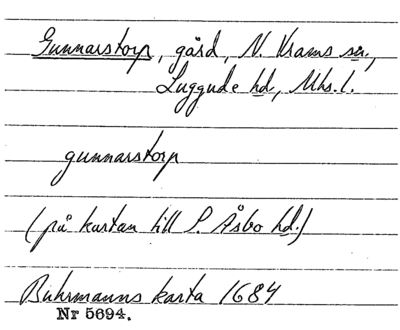 Gunnarstorp, gård, N. Vrams sn.,
Luggude hd., Mhs. l.
gunnarstorp
(på kartan till S. Åsbo hd.)
Buhrmanns karta 1684
Nr 5694.